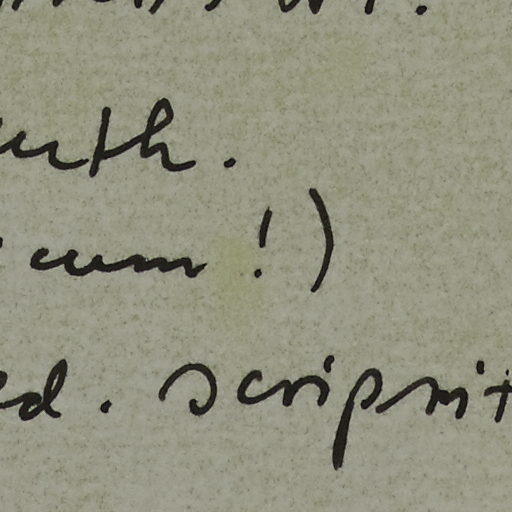 auth.
cum!)
ed. scripsit